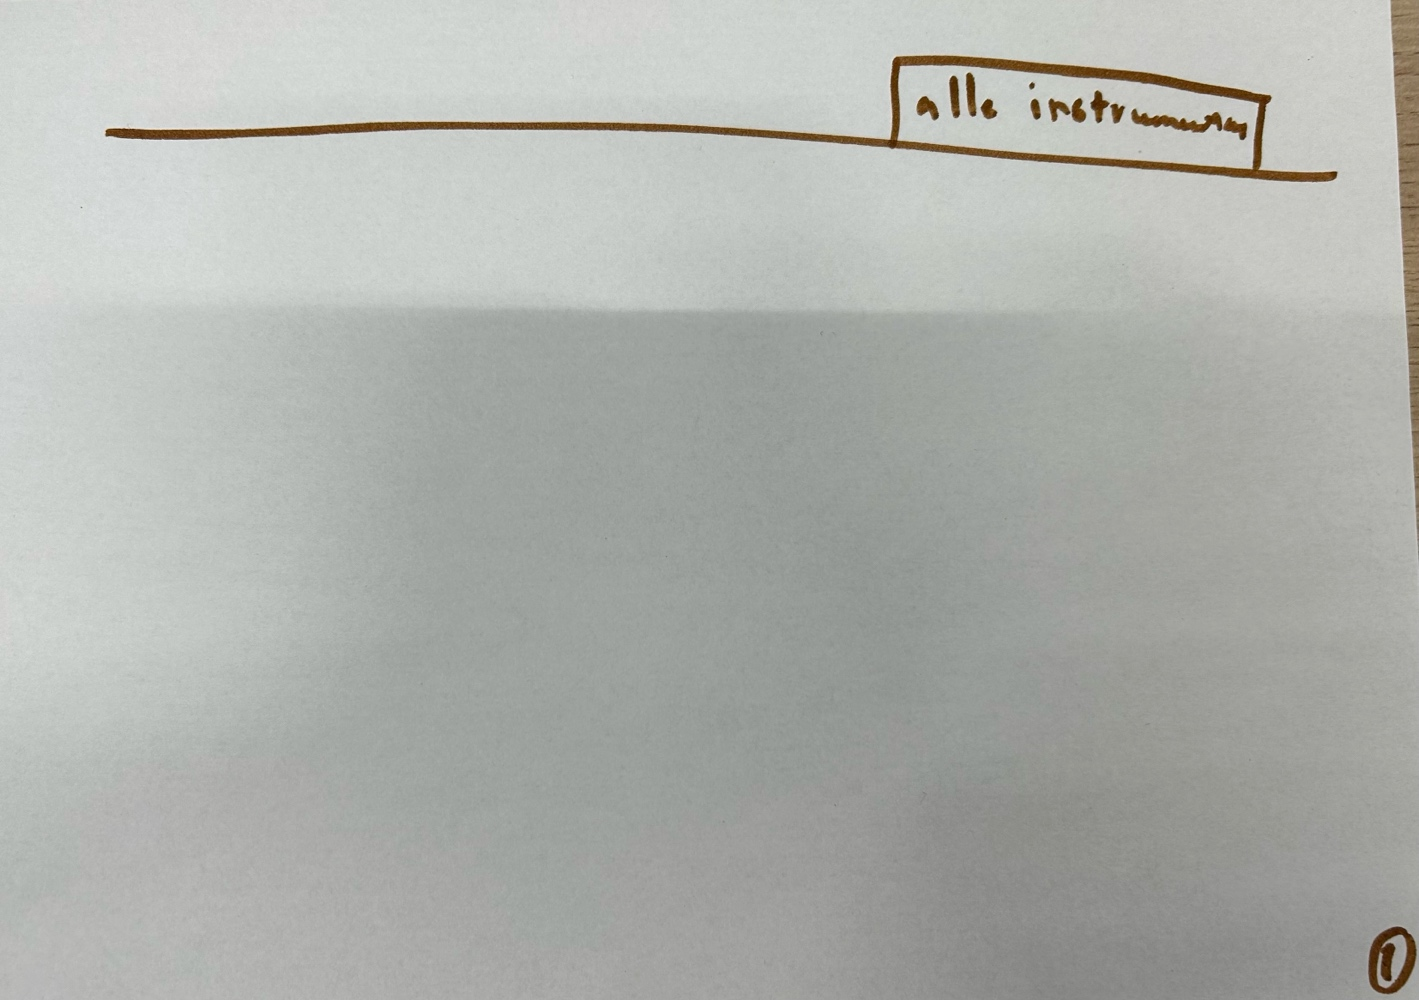 alle instrumenten
1